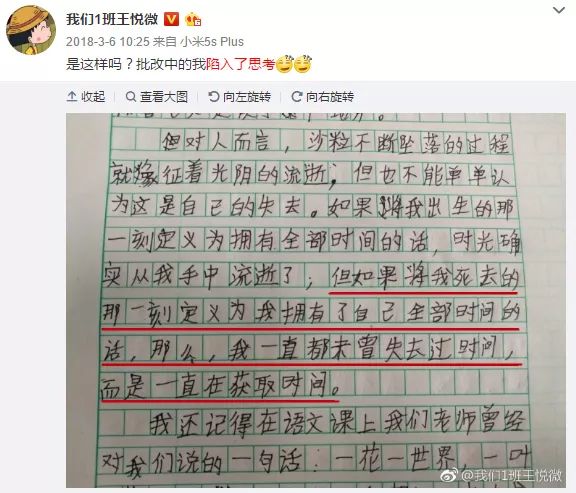 我们1班王悦微
2018-3-6 10:25 来自 小米5s Plus
是这样吗？批改中的我陷入了思考
收起 查看大图 向左旋转 向右旋转
但对人而言，沙粒不断坠落的过程
就像征着光阴的流逝；但也不能单单认
为这是自己的失去。如果将我出生的那
一刻定义为拥有全部时间的话，时光确
实从我手中流逝了；但如果将我死去的
那一刻定义为我拥有了自己全部时间的
话，那么，我一直都未曾失去过时间，
而是一直在获取时间。
我还记得在语文课上我们老师曾经
对我们说的一句话：一花一世界，一叶
@我们1班王悦微